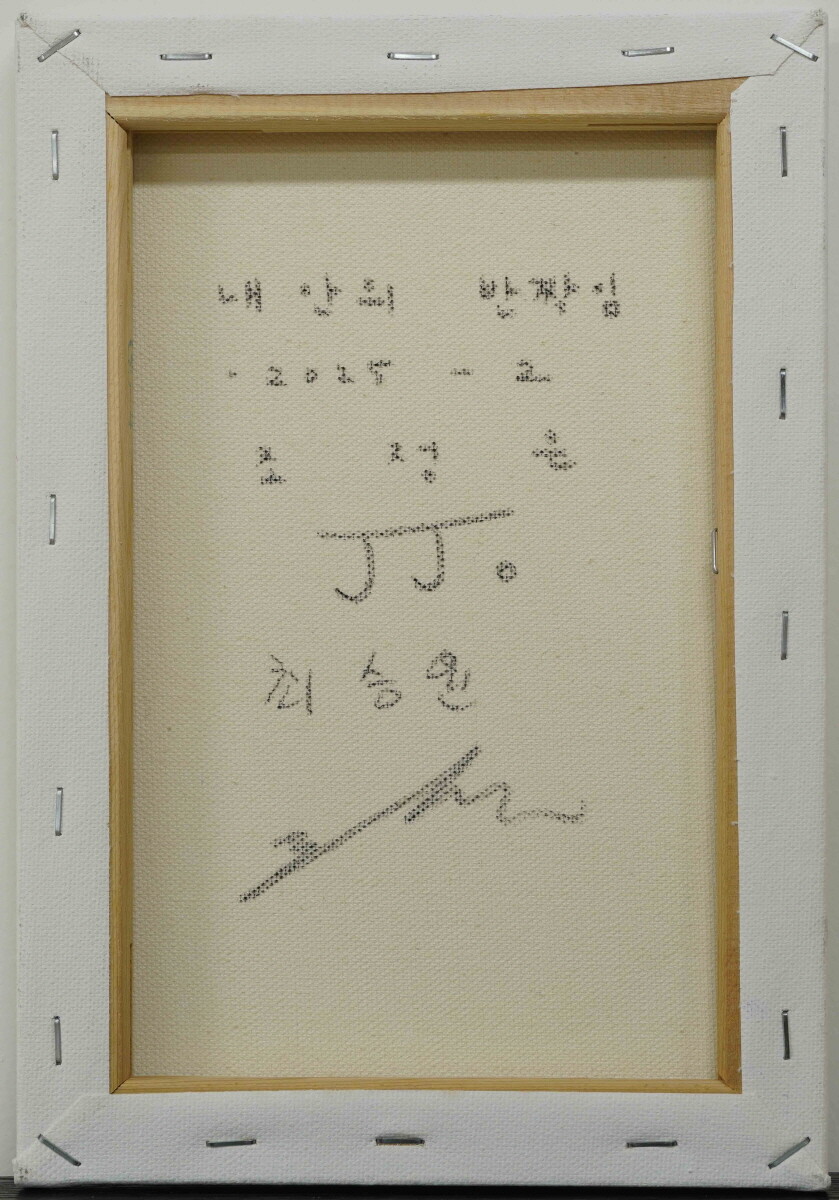 내 안의 반짝임
· 2025 - 2
조 정 은
JJ.
최 승 윤